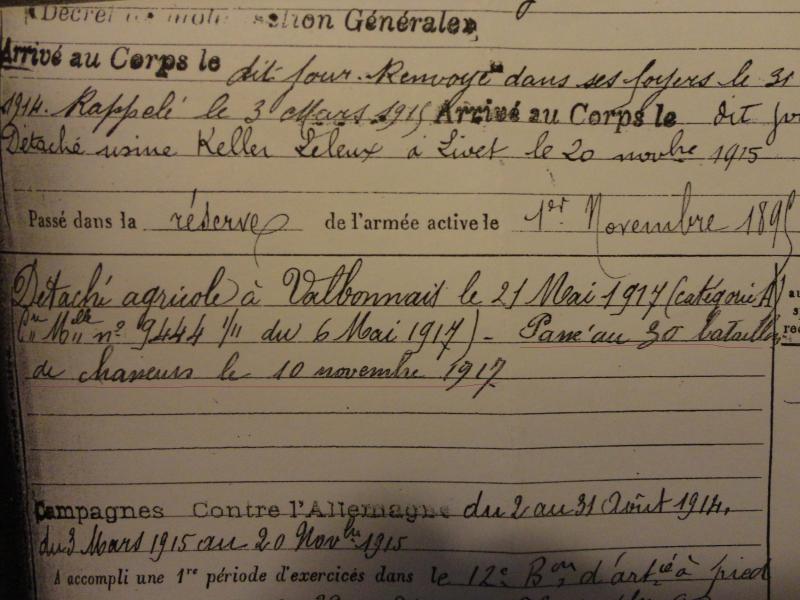 Décret de mobilisation Générale
Arrivé au Corps le dit jour. Renvoyé dans ses foyers le 31
1914. Rappelé le 3 Mars 1915 Arrivé au Corps le dit
Détaché usine Keller Leleux à Livet le 20 novbre 1915
Passé dans la réserve de l'armée active le 1er Novembre 189
Détaché agricole à Valbonnais le 21 Mai 1917 (catégorie A
Mlle n° 9444 1/11 du 6 Mai 1917) - Passé au 30 bataillon
de chasseurs le 10 novembre 1917
Campagnes Contre l'Allemagne du 2 au 31 Août 1914,
du 3 Mars 1915 au 20 Novbre 1915
A accompli une 1re période d'exercices dans le 12e Bon d'artie à pied